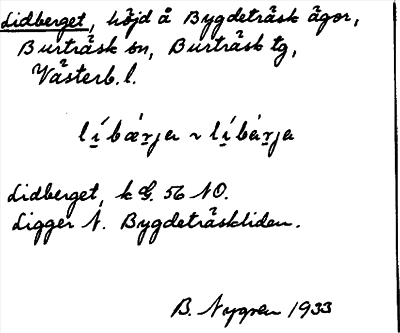 Lidberget, höjd å Bygdeträsk ägor,
Burträsk sn, Burträsk tg,
Västerb. l.
lí̠bæ̀r̠ja ~ lí̠bàr̠ja
Lidberget, k G. 56 NO.
Ligger N. Bygdeträskliden.
B. Nygren 1933